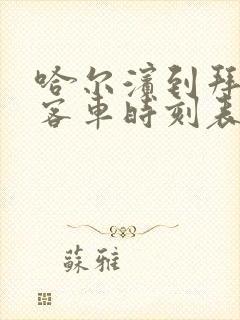 哈尔滨到拜
客车时刻表
蘇雅